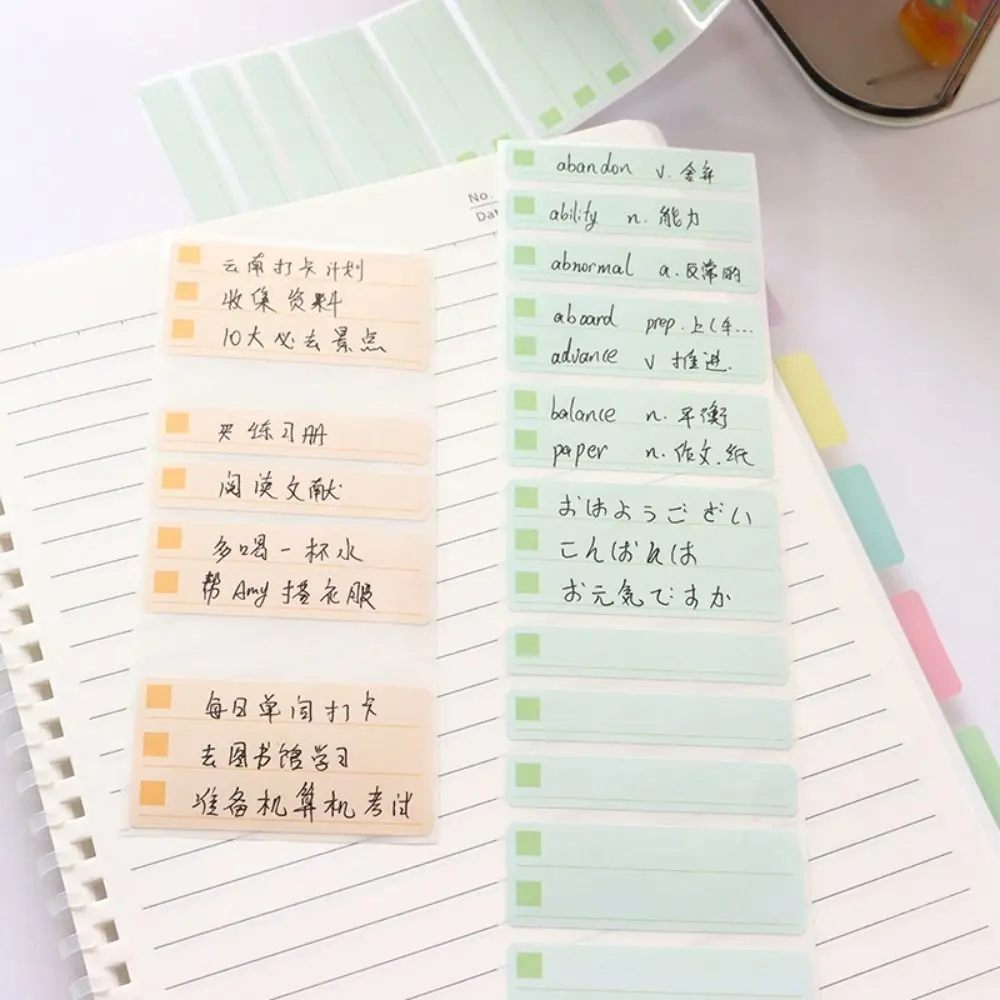 No.
Dat
云南打卡计划
收集资料
10大必去景点
买练习册
阅读文献
多喝一杯水
帮Amy搭衣服
每日单词打卡
去图书馆学习
准备机算机考试
abandon v. 舍弃
ability n. 能力
abnormal a. 反常的
aboard prep. 上(车...
advance v 推进.
balance n. 平衡
paper n. 作文.纸
おはようござい
こんばんは
お元気ですか